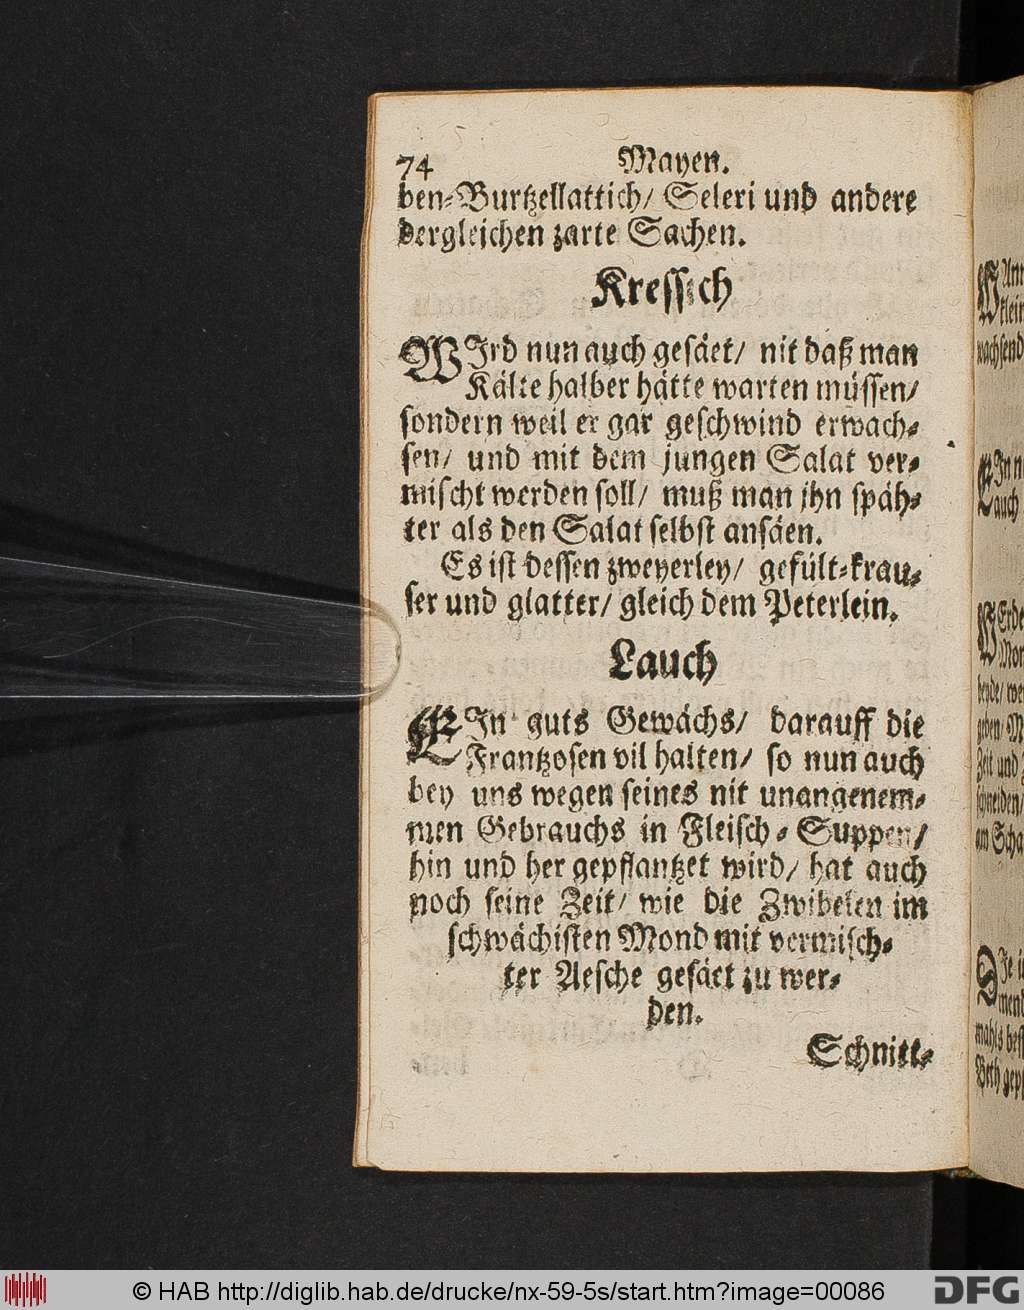 74 Mayen.
ben-Burtzellattich/ Seleri und andere
dergleichen zarte Sachen.
Kressich
WIrd nun auch gesäet/ nit daß man
Kälte halber hätte warten müssen/
sondern weil er gar geschwind erwach-
sen/ und mit dem jungen Salat ver-
mischt werden soll/ muß man ihn späh-
ter als den Salat selbst ansäen.
Es ist dessen zweyerley/ gefült-krau-
ser und glatter/ gleich dem Peterlein.
Lauch
EIn guts Gewächs/ darauff die
Frantzosen vil halten/ so nun auch
bey uns wegen seines nit unangenem-
men Gebrauchs in Fleisch-Suppen/
hin und her gepflantzet wird/ hat auch
noch seine Zeit/ wie die Zwibelen im
schwächisten Mond mit vermisch-
ter Aesche gesäet zu wer-
den.
Schnitt-
© HAB http://diglib.hab.de/drucke/nx-59-5s/start.htm?image=00086
DFG